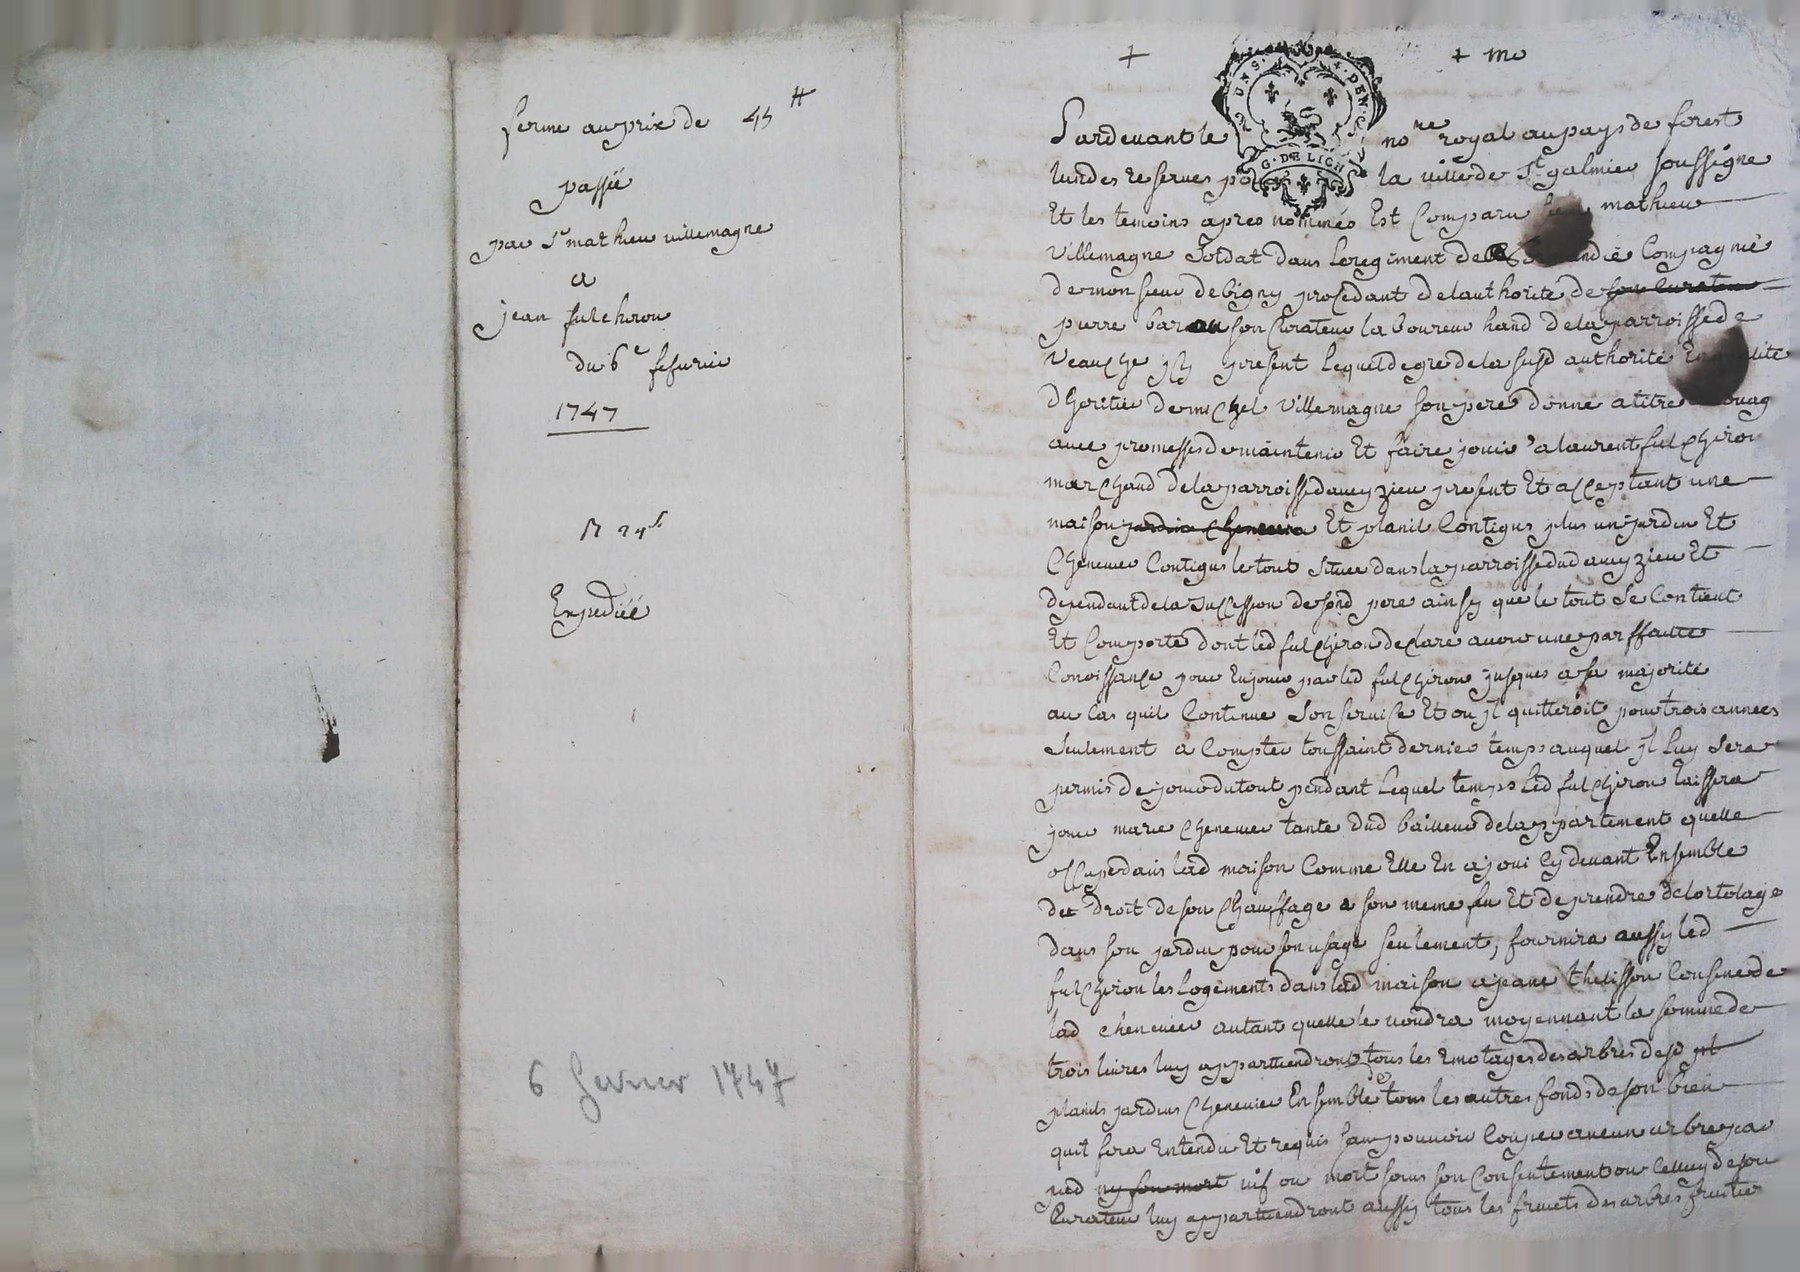 ferme au prix de 45 ₶
passée
par Sr mathieu villemagne
a
jean fulchiron
du 6e fesurier
1747
R 24s
Expediéé
6 fevrier 1747
+ + mo
Pardevant le nore royal au pays de forest
lundes reservés pour la ville de St galmier soussigné
Et les temoins apres nommés Est Comparu mathieu
Villemagne Soldat dans Le regiment de Compagnie
de monsieur de bigny procedant de lauthorite de son Curateur
pierre barou son Curateur laboureur hand de la parroisse de
Veauche jcy present Lequel de gre de la susd authorité En qualité
dheritier de michel Villemagne son pere donne a titre louag
avec promesses de maintenir Et faire jouir a laurent fulchiron
marchand de la parroisse daveyzieu present Et acceptant une
maison jardin chenevier Et planil Contigus plus un jardin Et
Chenevier Contigus le tout Situee dans la parroisse dud aveyzieu Et
dependant de la Sucession de sond pere ainsy que le tout Se Contient
Et Comporte dont led fulchiron declare avoir une parffaitte
Conoissance pour En jouir par led fulchiron jusques a sa majorité
au Cas quil Continue Son service Et ou jl quitteroit pour trois années
Seulement a Compter toussaint dernier temps auquel jl luy sera
permis de jouir du tout pendant Lequel temps Led fulchiron laissera
jouir marie chenevier tante dud bailleur de lappartement quelle
occupe dans lad maison Comme Elle En a joui Cy devant Ensemble
du droit de son Chauffage a son meme feu Et de prendre de lortolage
dans son jardin pour son usage seulement, fournira aussy led
fulchiron les Logements dans lad maison a jeane thelisson
lad chenevier autant quelle le voudra moyennant la somme de
trois livres luy appartiendront tous les Emotages des arbres desd
planils jardins Chenevier Ensemble de tous les autres fonds de son bien
quil fera Entendu Et requis sans pouvoir Couper aucun arbre par
pied ny son mort vif ou mort sans son Consentement ou Celluy de son
Curateur luy appartiendront aussy tous les fruits des arbres fruitier